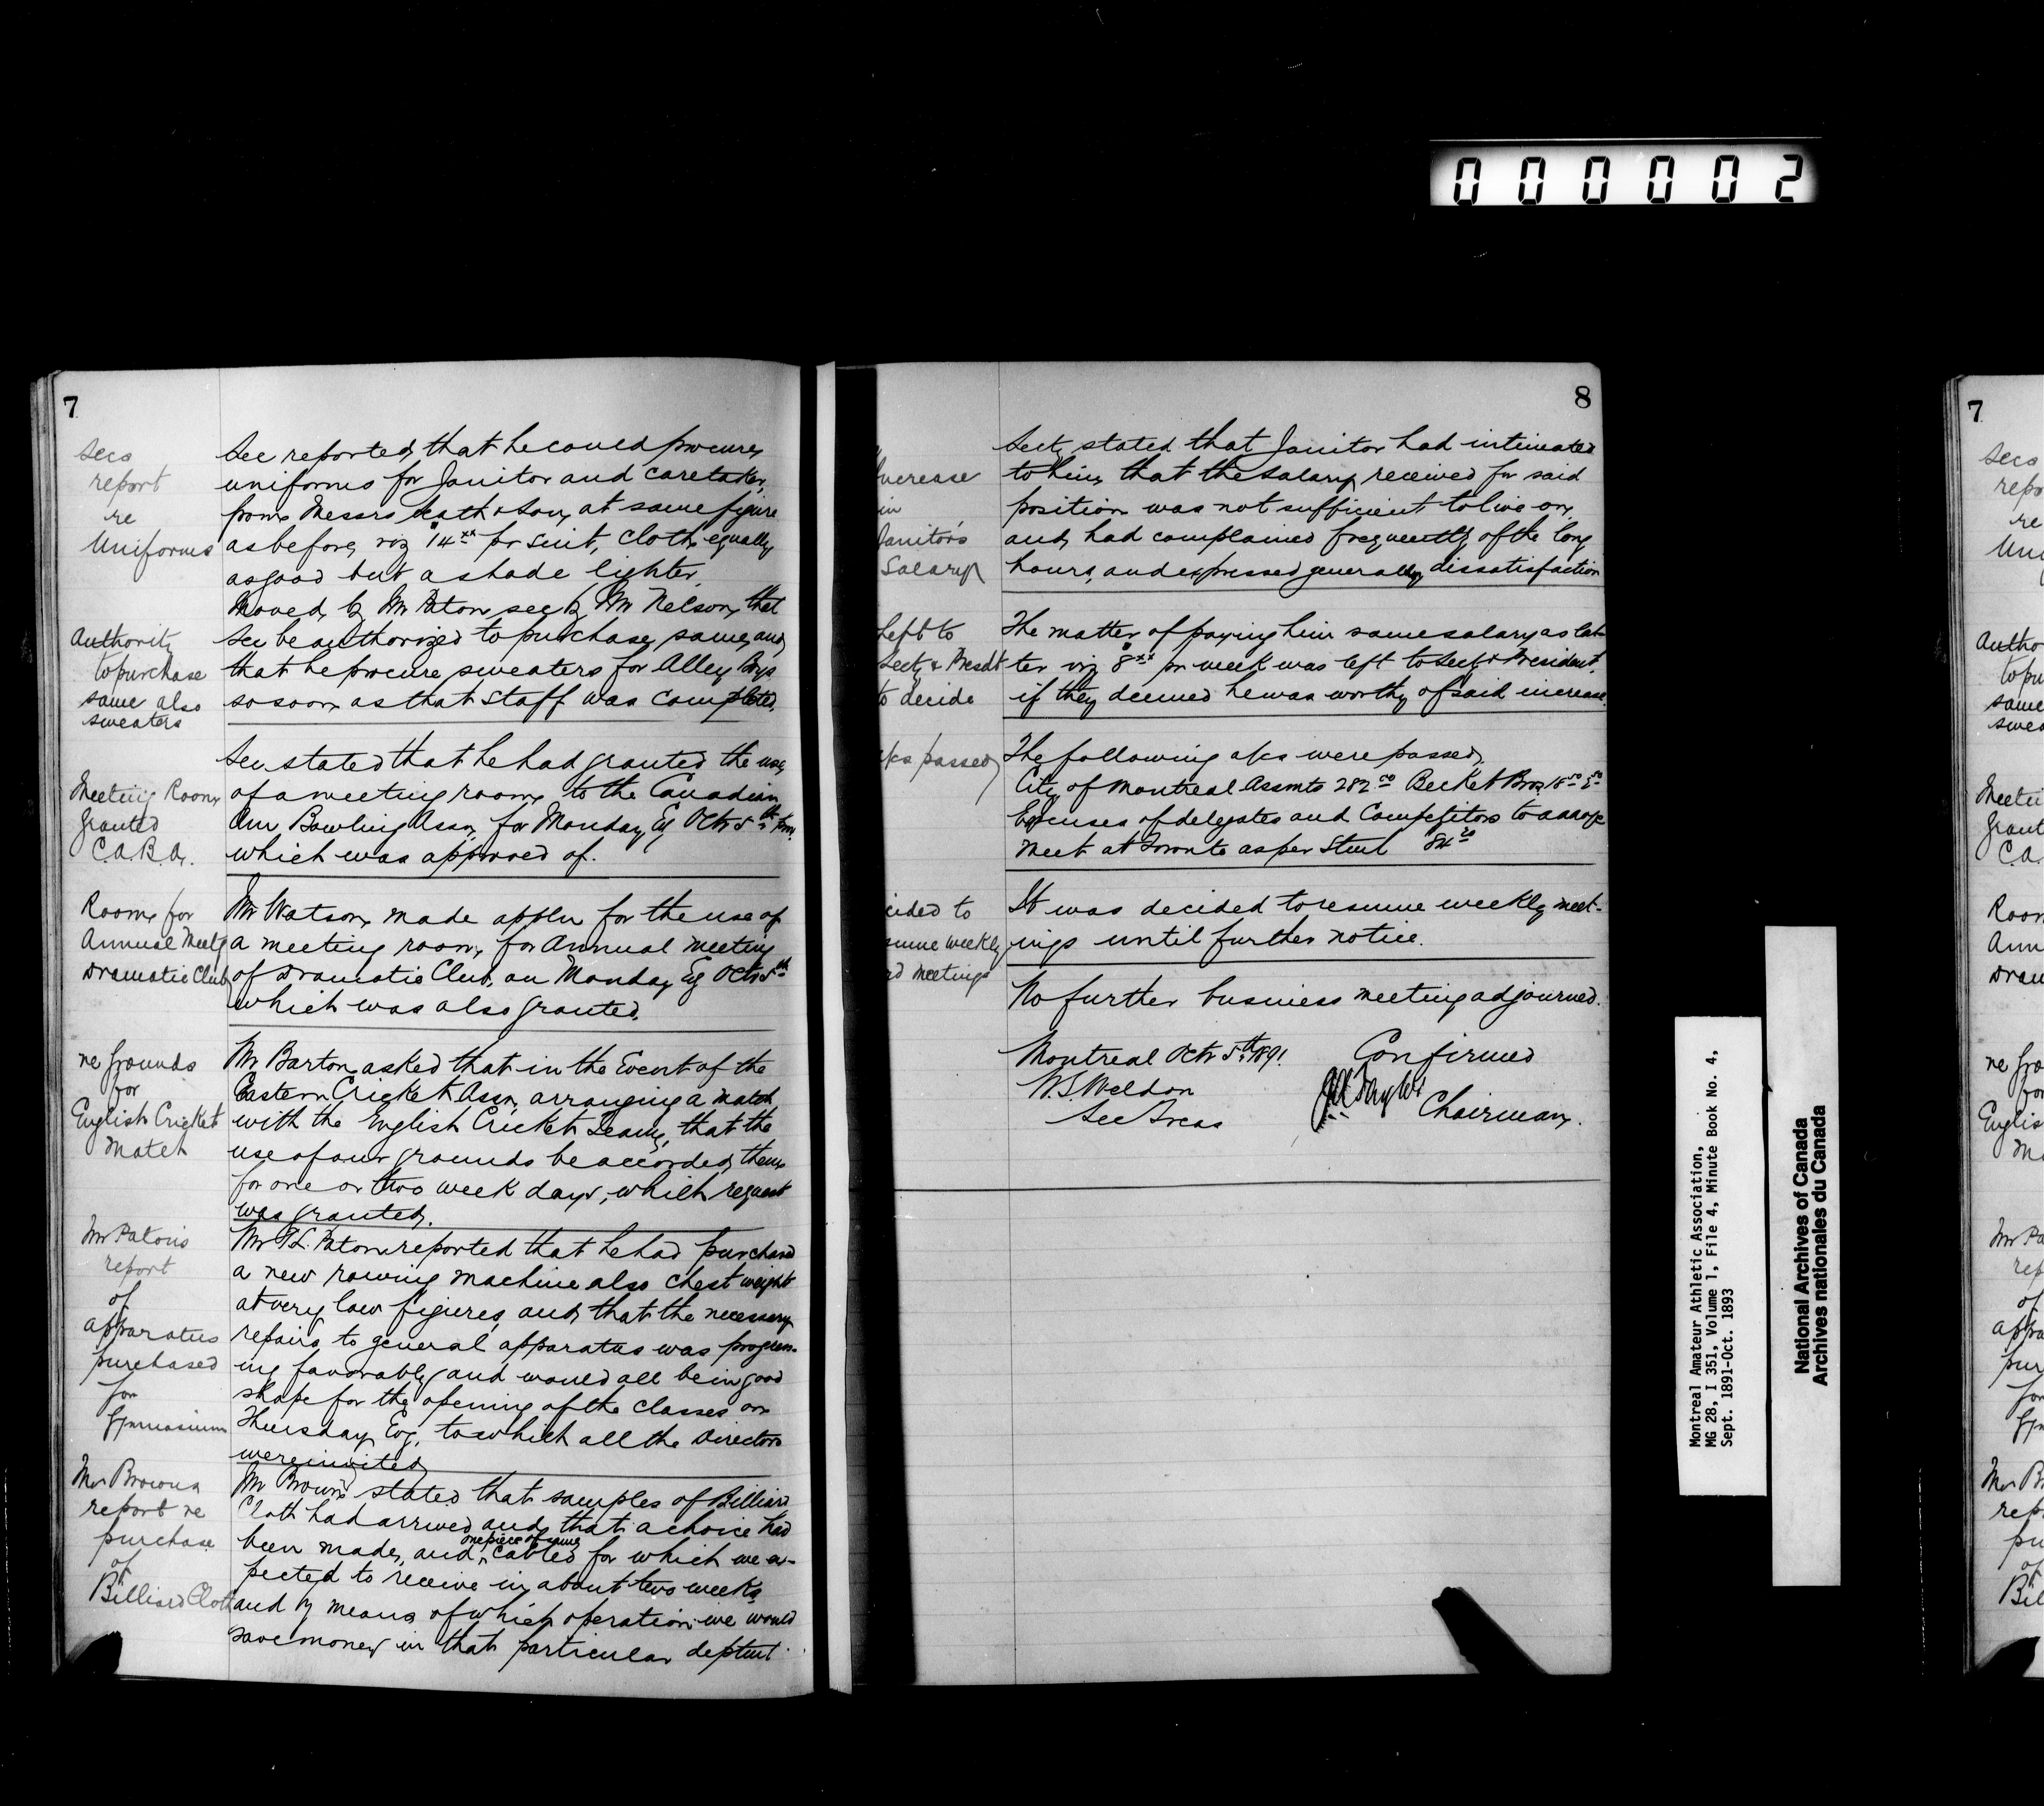 000002
7
Secs
report
re
Uniforms
See reported that he could procure
uniforms for Janitor and caretaker,
from Messrs & Son, at same figure
as before, viz $14.xx pr suit, cloth equally
as good but a shade lighter.
Moved by Mr Paton sec by Mr Nelson, that
Authority
to purchase
same also
sweaters
Sec be authorized to purchase same, and
that he procure sweaters for Alley Boys
so soon as that staff was completed.
Meeting Room
granted
C.A.B.A.
Sec stated that he had granted the use
of a meeting room to the Canadian
Am Bowling Assn, for Monday Eg Octr 5th prox.
which was approved of.
Room for
Annual Meetg
Dramatic Club
Mr Watson made appln for the use of
a meeting room, for Annual meeting
of Dramatic Club, on Monday Eg Octr 5th
which was also granted.
re grounds
for
English Cricket
Match
Mr Barton asked that in the Event of the
Eastern Cricket Assn, arranging a match
with the English Cricket Team, that the
use of our grounds be accorded them
for one or two week days, which request
was granted.
Mr Patons
report
of
apparatus
purchased
for
Gymnasium
Mr T.L. Paton reported that he had purchased
a new rowing machine also chest weight
at very low figures, and that the necessary
repairs to general apparatus was progress-
ing favorably and would all be in good
shape for the opening of the classes on
Thursday Evg. to which all the Directors
were invited
Mr Browns
report re
purchase
of
Billiard Cloth
Mr Brown stated that samples of Billiard
Cloth had arrived and that a choice had
been made, and one piece of same cabled for which we ex-
pected to receive in about two weeks
and by means of which operation we would
save money in that particular deptmt.
8
Increase
in
Janitor's
Salary
Secty stated that Janitor had intimated
to him that the salary received for said
position was not sufficient to live on,
and had complained frequently of the long
hours, and expressed generally dissatisfaction
Left to
Secty & Presdt
to decide
The matter of paying him same salary as lat-
ter viz $8.xx pr week was left to Secty & President
if they deemed he was worthy of said increase.
a/cs passed
The following a/cs were passed,
City of Montreal Assmts 282.50 Becket Bros
Expenses of delegates and Competitors to
Meet at Toronto as per Stmt
cided to
sume weekly
rd meetings
It was decided to resume weekly meet-
ings until further notice.
No further business meeting adjourned.
Montreal Octr 5th 1891.
W.S. Weldon
Sec Treas
Confirmed
Taylor
Chairman.
Montreal Amateur Athletic Association,
MG 28, I 351, Volume 1, File 4, Minute Book No. 4,
Sept. 1891-Oct. 1893
National Archives of Canada
Archives nationales du Canada
7